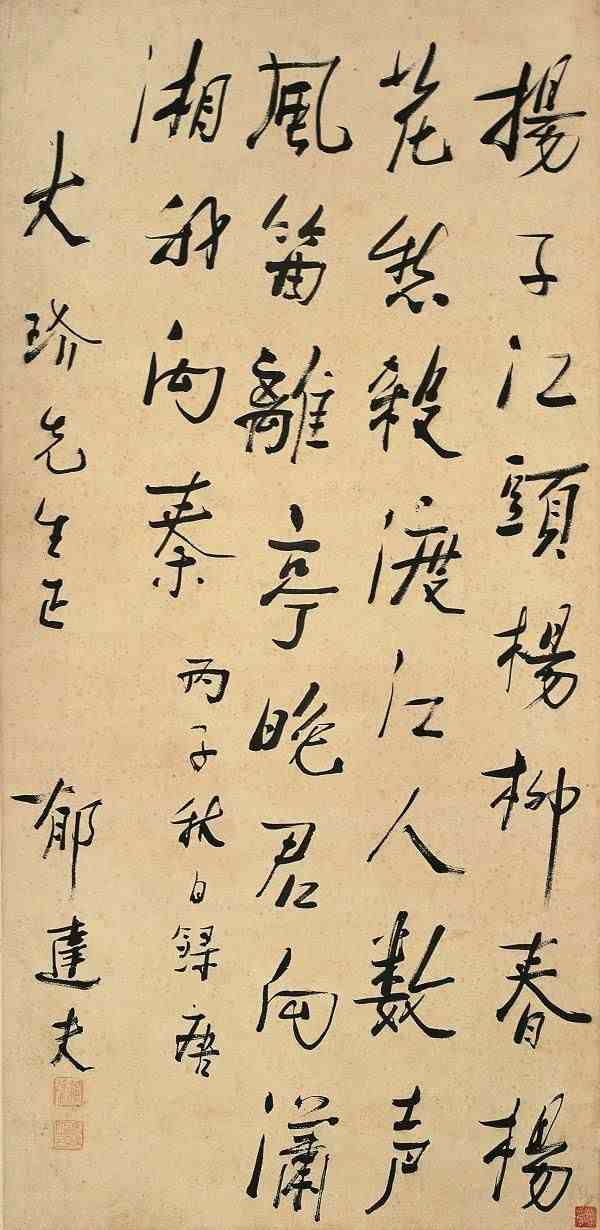 揚子江頭楊柳春楊
花愁殺渡江人數声
風笛離亭晚君向瀟
湘我向秦
丙子秋日録唐
大珍先生正
郁達夫